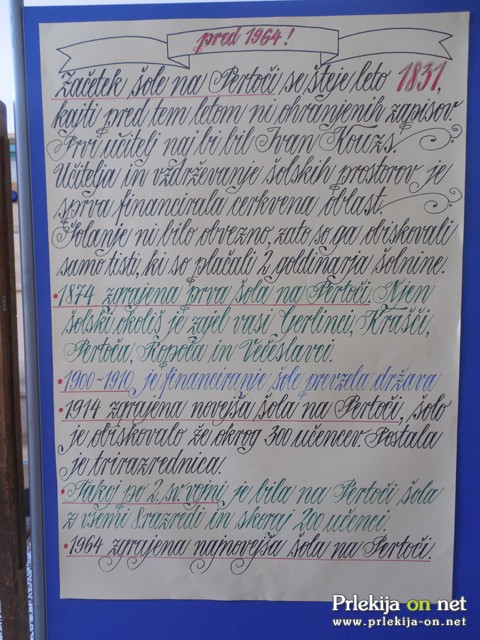 pred 1964!
Začetek šole na Pertoči se šteje leto 1831,
kajti pred tem letom ni ohranjenih zapisov.
Prvi učitelj naj bi bil Ivan Kouzs.
Učitelja in vzdrževanje šolskih prostorov je
sprva financirala cerkvena oblast.
Šolanje ni bilo obvezno, zato so ga obiskovali
samo tisti, ki so plačali 2 goldinarja šolnine.
• 1874 zgrajena prva šola na Pertoči. Njen
šolski okoliš je zajel vasi Gerlinci, Krašči,
Pertoča, Ropoča in Večeslavci.
• 1900-1910 je financiranje šole prevzela država
• 1914 zgrajena novejša šola na Pertoči, šolo
je obiskovalo že okrog 300 učencev. Postala
je trirazrednica.
• Takoj po 2. sv. vojni je bila na Pertoči šola
z vsemi 8 razredi in skoraj 200 učenci.
• 1964 zgrajena najnovejša šola na Pertoči.
Prlekija on net
www.prlekija-on.net